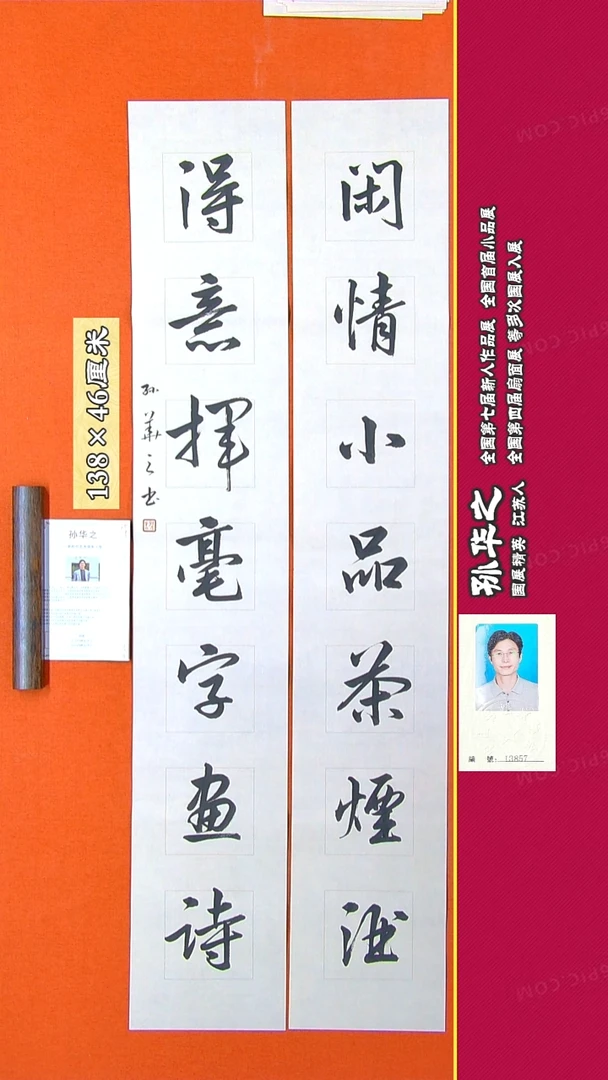 閑情小品茶煙酒
得意揮毫字畫詩
孙華之书
138×46厘米
孙华之
孙华之
全国第七届新人作品展 全国首届小品展
全国第四届扇面展 等多次国展入展
国展精英 江苏人
編 號: 13857